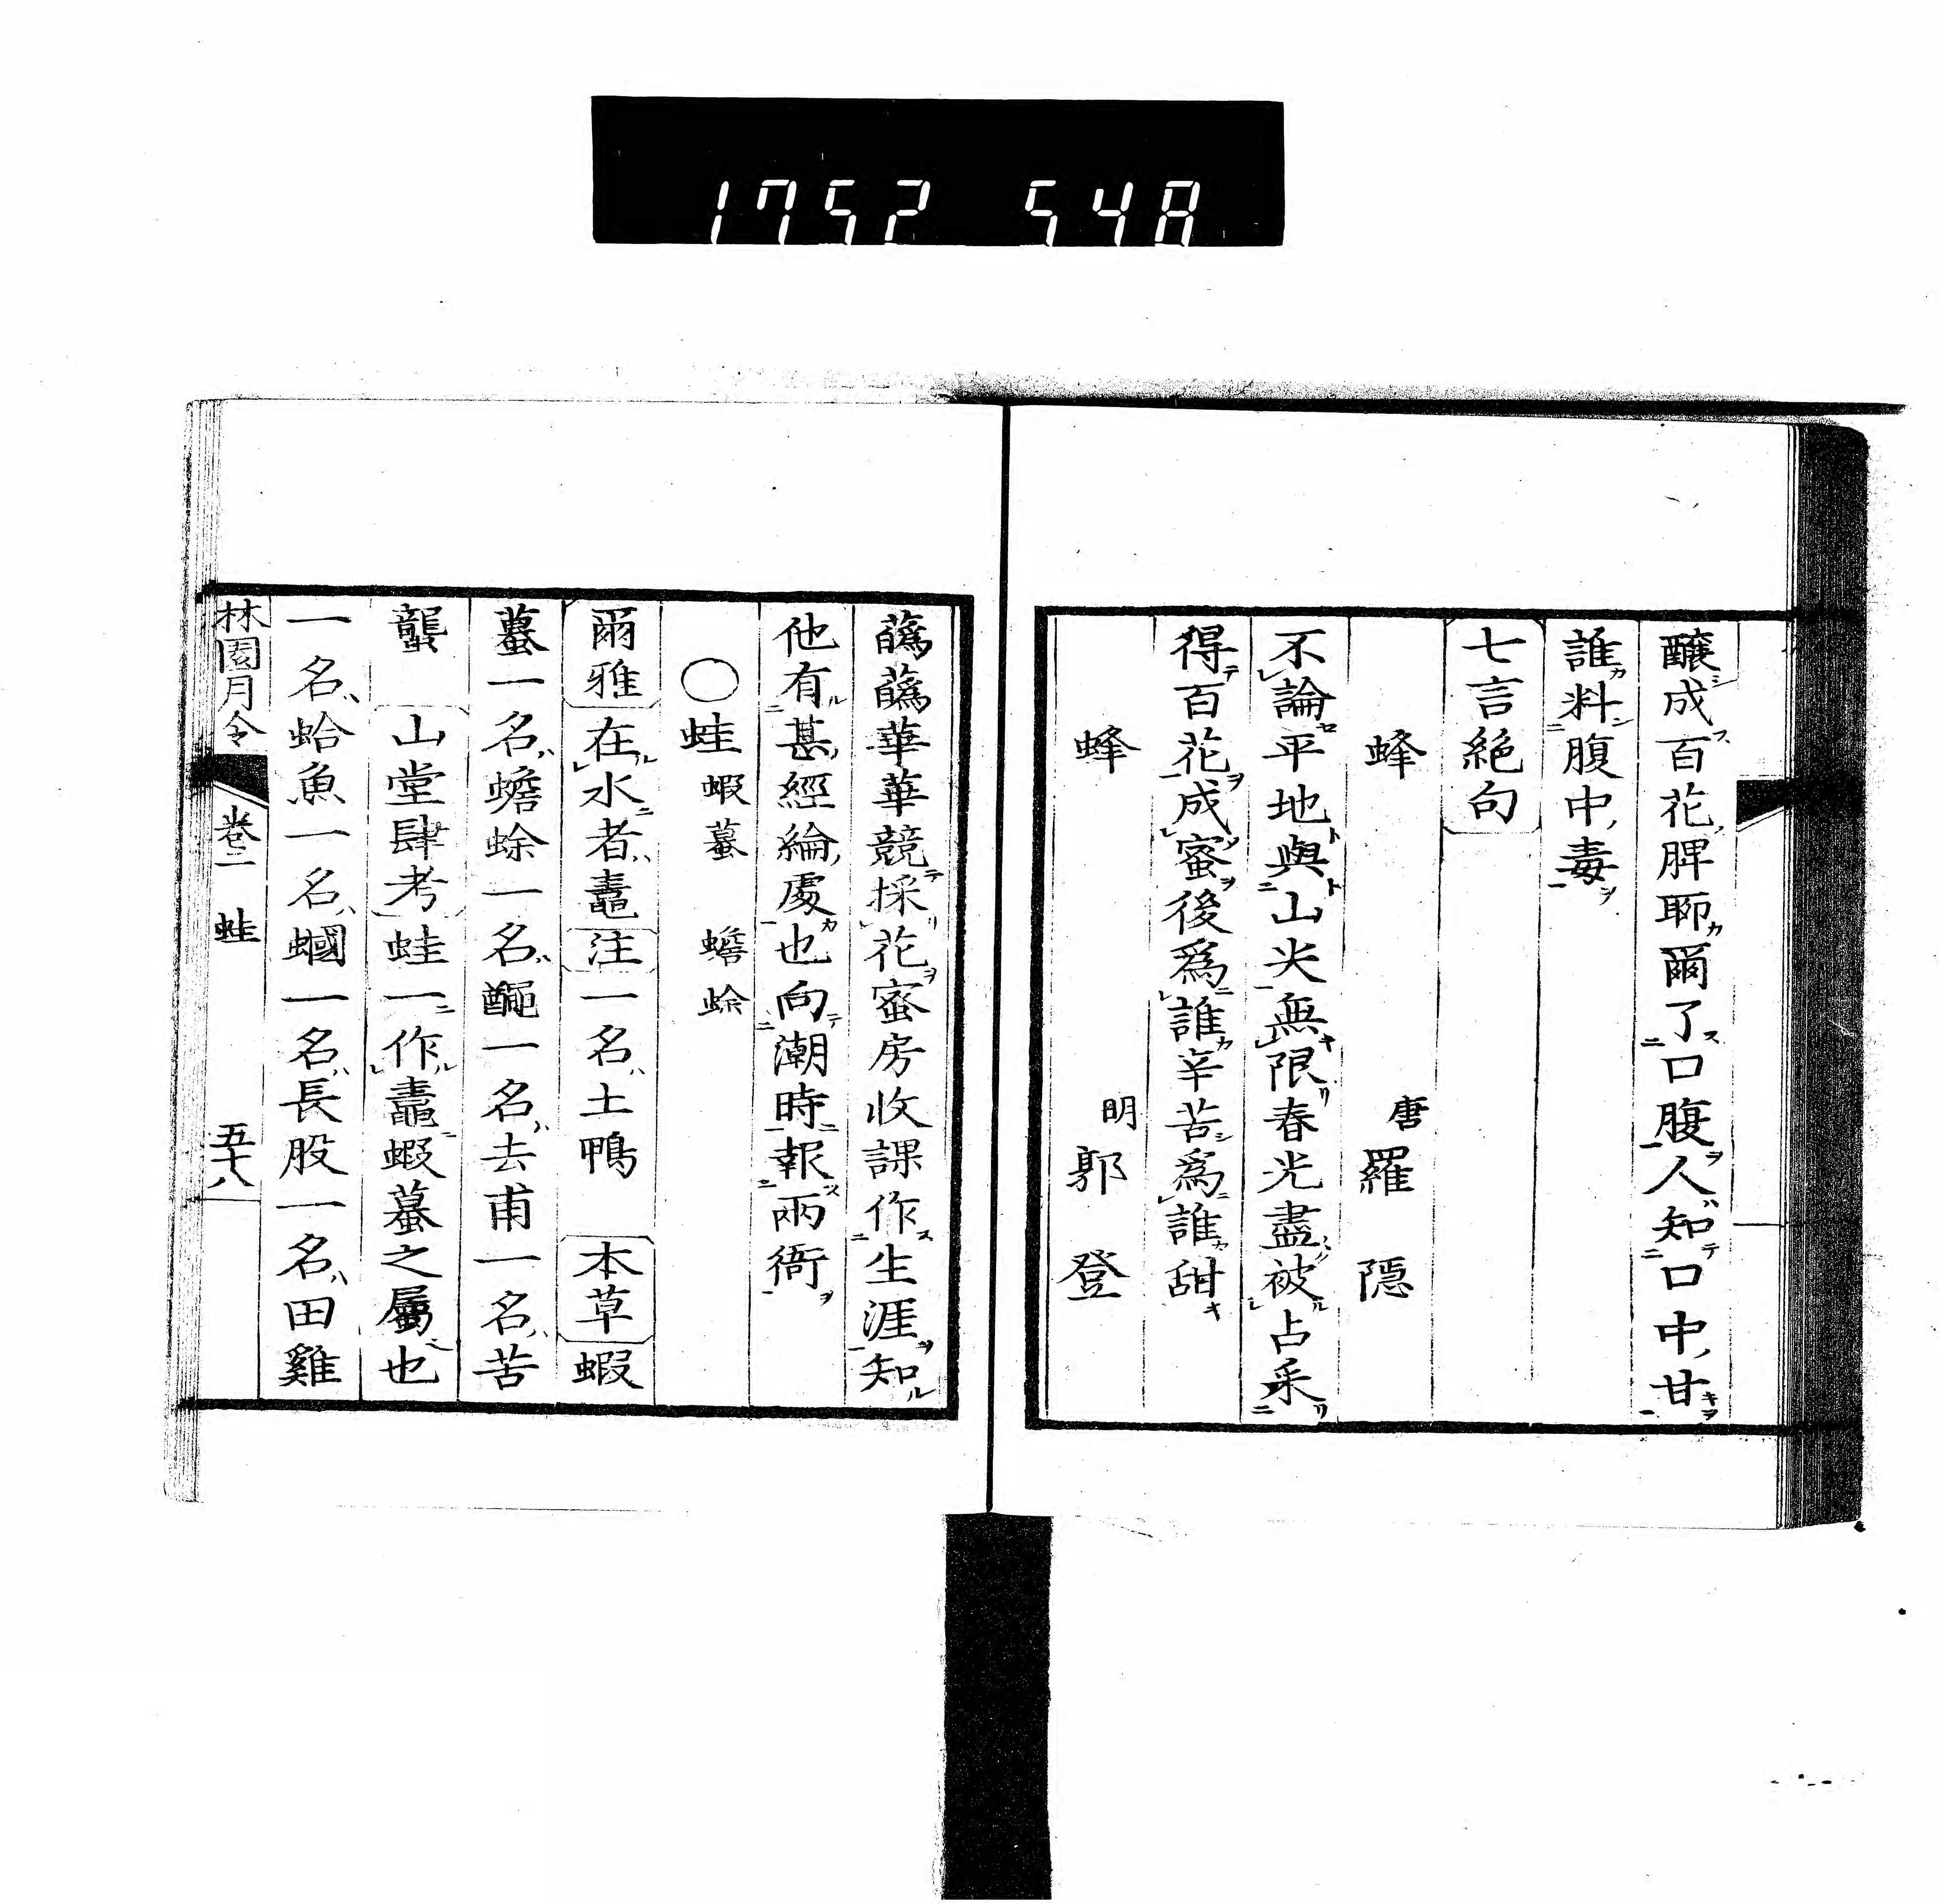 1752 548
釀成百花脾聊爾了口腹人知口中甘
誰料腹中毒
七言絶句
蜂 唐 羅隱
不論平地與山尖無限春光盡被占采
得百花成蜜後爲誰辛苦爲誰甜
蜂 明 郭登
蘤蘤華華競採花蜜房收課作生涯知
他有甚經綸處也向潮時報兩衙
○蛙 蝦蟇 蟾蜍
爾雅 在水者鼃 注 一名土鴨 本草 蝦
蟇一名蟾蜍一名 一名去甫一名苦
蠪 山堂肆考 蛙一作鼃蝦蟇之屬也
一名蛤魚一名蟈一名長股一名田雞
林園月令 卷二 蛙 五十八